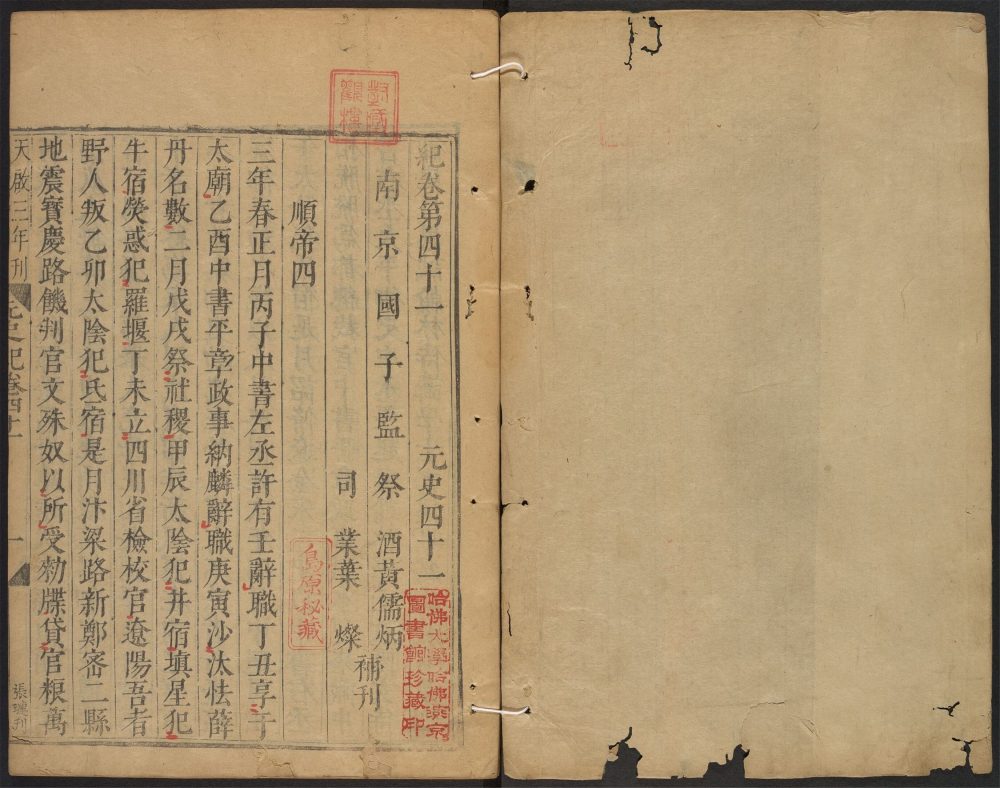 紀卷第四十一 元史四十一
南京國子監祭酒黃儒炳
司業葉燦 補刊
順帝四
三年春正月丙子中書左丞許有壬辭職丁丑享于
太廟乙酉中書平章政事納麟辭職庚寅沙汰怯薛
丹名數二月戊戌祭社稷甲辰太陰犯井宿填星犯
牛宿熒惑犯羅堰丁未立四川省檢校官遼陽吾者
野人叛乙卯太陰犯氐宿是月汴梁路新鄭密二縣
地震寶慶路饑判官文殊奴以所受勑牒貸官糧萬
天啟三年刊 元史紀卷四十一 一
島原秘藏
哈佛大學哈佛燕京
圖書館珍藏印